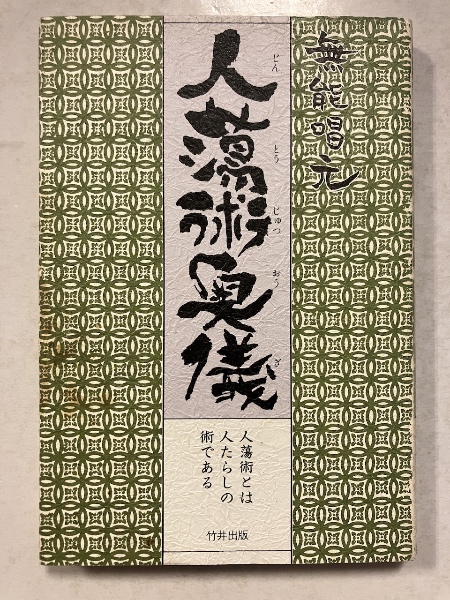 無能唱元
人蕩術奥儀
じんとうじゅつおうぎ
人蕩術とは
人たらしの
術である
竹井出版